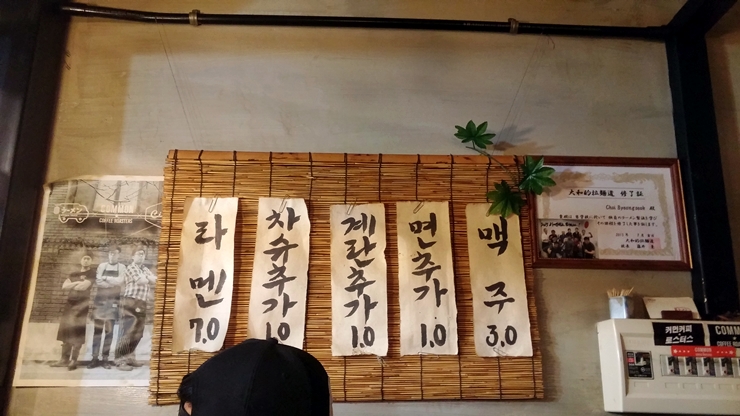 COMMON
COFFEE ROASTERS
라멘
7.0
차슈추가
1.0
계란추가
1.0
면추가
1.0
맥주
3.0
大和的拉麺道 修了証
Choi Byeongseok 殿
커먼커피
로스터스
COMM
COFFEE ROAST